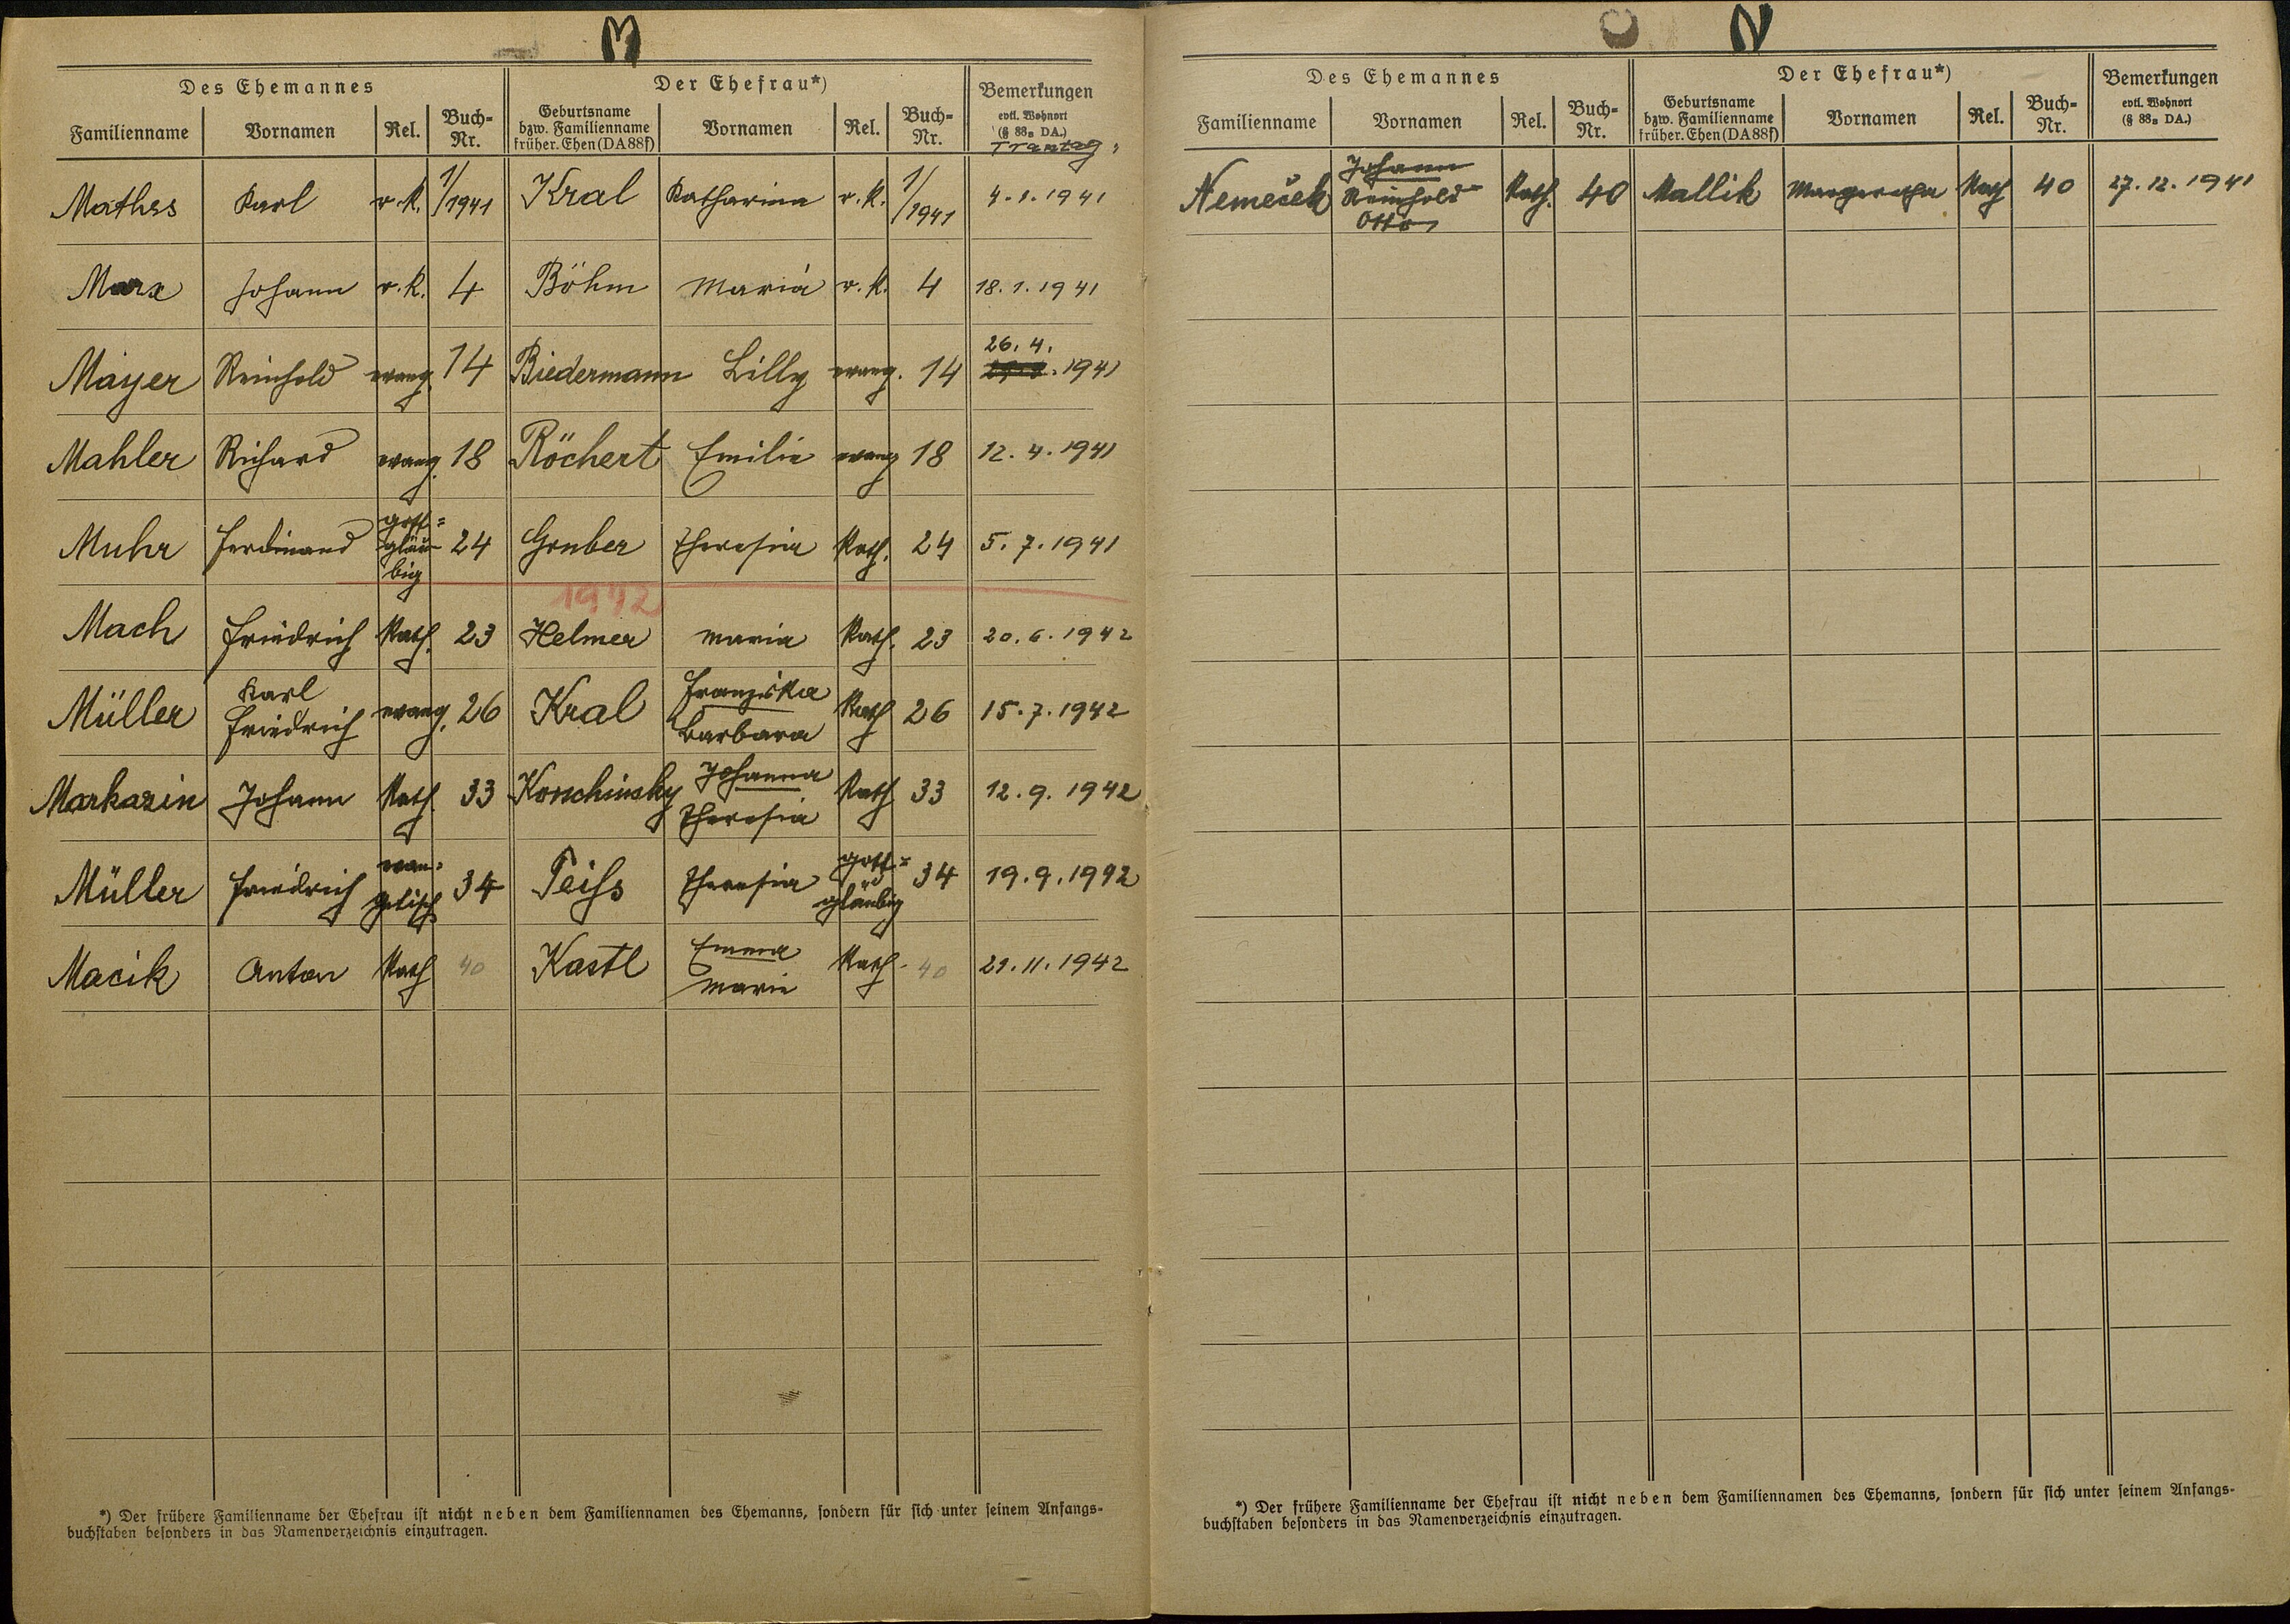 M
Des Ehemannes Der Ehefrau*) Bemerkungen
evtl. Wohnort
(§ 88a DA.)
Familienname Vornamen Rel. Buch-Nr. Geburtsname bzw. Familienname früher. Ehen (DA 88f) Vornamen Rel. Buch-Nr. Trautag
Mathes Karl r.k. 1/1941 Kral Katharina r.k. 1/1941 4.1.1941
Marx Johann r.k. 4 Böhm Maria r.k. 4 18.1.1941
Mayer Reinhold evang. 14 Biedermann Lilly evang. 14 26.4. 1941
Mahler Richard evang. 18 Röchert Emilie evang 18 12.4.1941
Muhr Ferdinand gott=gläu-big 24 Gruber Theresia Kath. 24 5.7.1941
1942
Mach Friedrich Kath. 23 Helmer Maria Kath. 23 20.6.1942
Müller Karl Friedrich evang. 26 Kral Franziska Barbara Kath 26 15.7.1942
Markazin Johann Kath. 33 Korschinsky Johanna Theresia Kath 33 12.9.1942
Müller Friedrich evan=gelisch 34 Teifs Theresia gott=gläubig 34 19.9.1942
Macik Anton Kath 40 Kastl Emma Marie Kath. 40 21.11.1942
*) Der frühere Familienname der Ehefrau ist nicht neben dem Familiennamen des Ehemanns, sondern für sich unter seinem Anfangs-
buchstaben besonders in das Namenverzeichnis einzutragen.
N
Des Ehemannes Der Ehefrau*) Bemerkungen
evtl. Wohnort
(§ 88a DA.)
Familienname Vornamen Rel. Buch-Nr. Geburtsname bzw. Familienname früher. Ehen (DA 88f) Vornamen Rel. Buch-Nr.
Nemeček Johann Reinhold Otto Kath. 40 Mallik Margaretha Kath 40 27.12.1941
*) Der frühere Familienname der Ehefrau ist nicht neben dem Familiennamen des Ehemanns, sondern für sich unter seinem Anfangs-
buchstaben besonders in das Namenverzeichnis einzutragen.